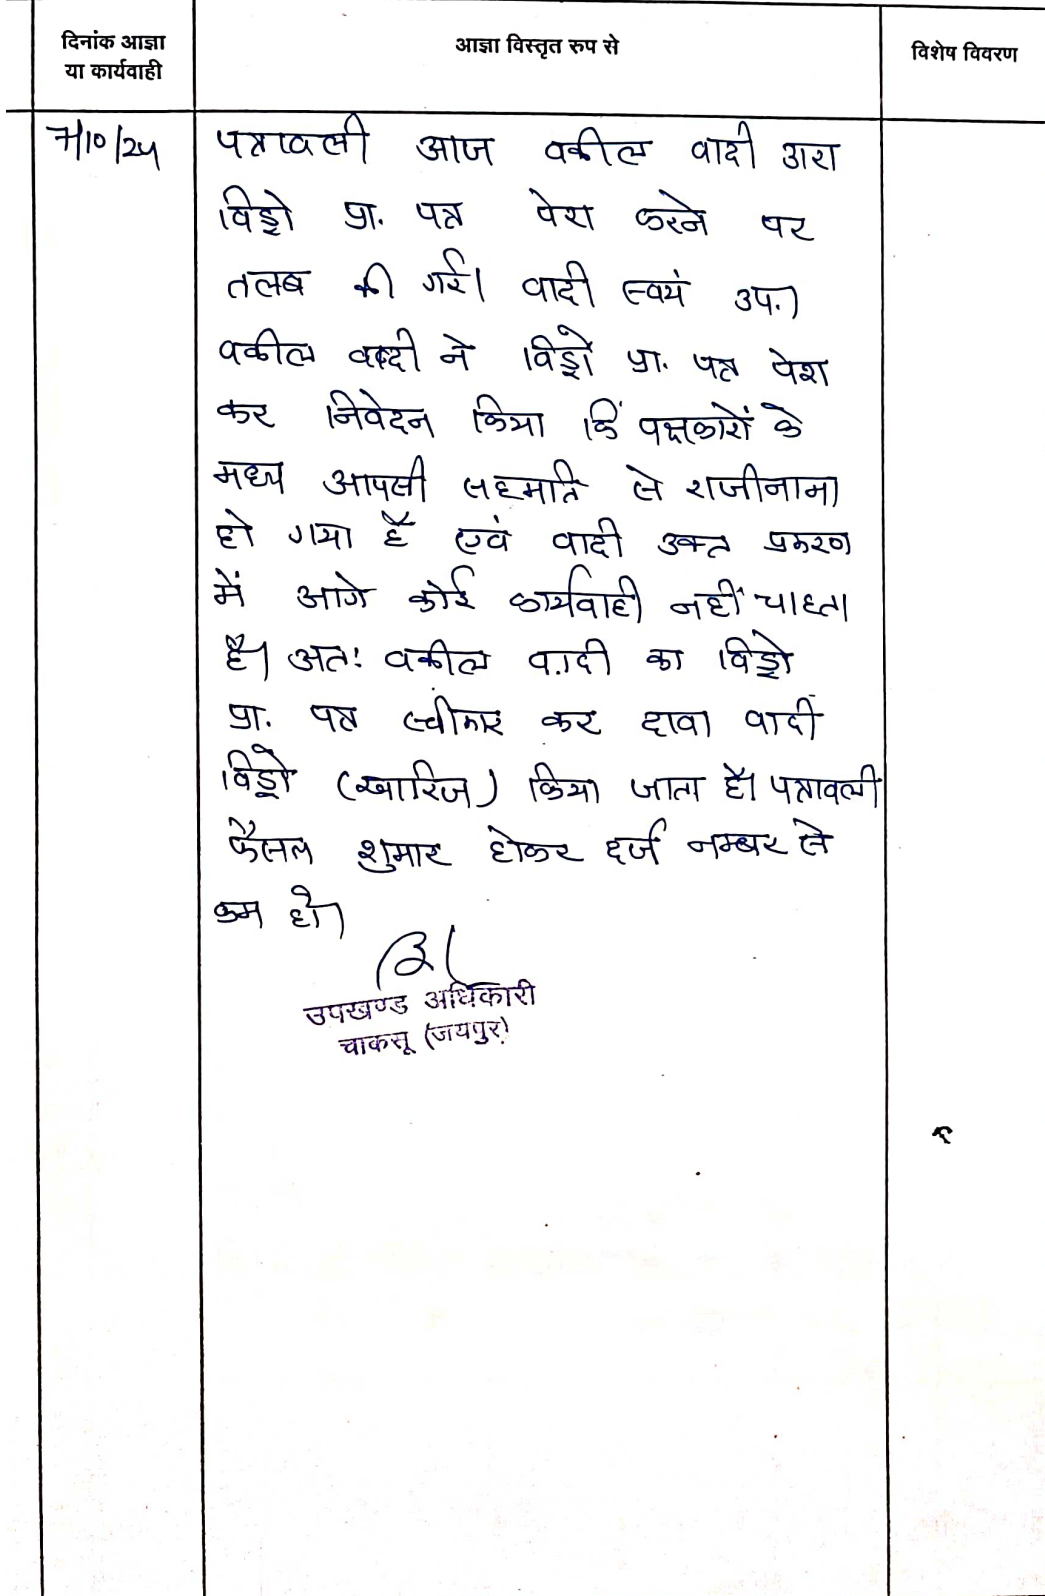 दिनांक आज्ञा
या कार्यवाही
आज्ञा विस्तृत रुप से
विशेष विवरण
7/10/24
पत्रावली आज वकील वादी द्वारा
विड्रो प्रा. पत्र पेश करने पर
तलब की गई। वादी स्वयं उप.।
वकील वादी ने विड्रो प्रा. पत्र पेश
कर निवेदन किया कि पक्षकारों के
मध्य आपसी सहमति से राजीनामा
हो गया है एवं वादी उक्त प्रकरण
में आगे कोई कार्यवाही नहीं चाहता
है। अतः वकील वादी का विड्रो
प्रा. पत्र स्वीकार कर दावा वादी
विड्रो (खारिज) किया जाता है। पत्रावली
फैसल शुमार होकर दर्ज नम्बर से
कम हो।
उपखण्ड अधिकारी
चाकसू (जयपुर)